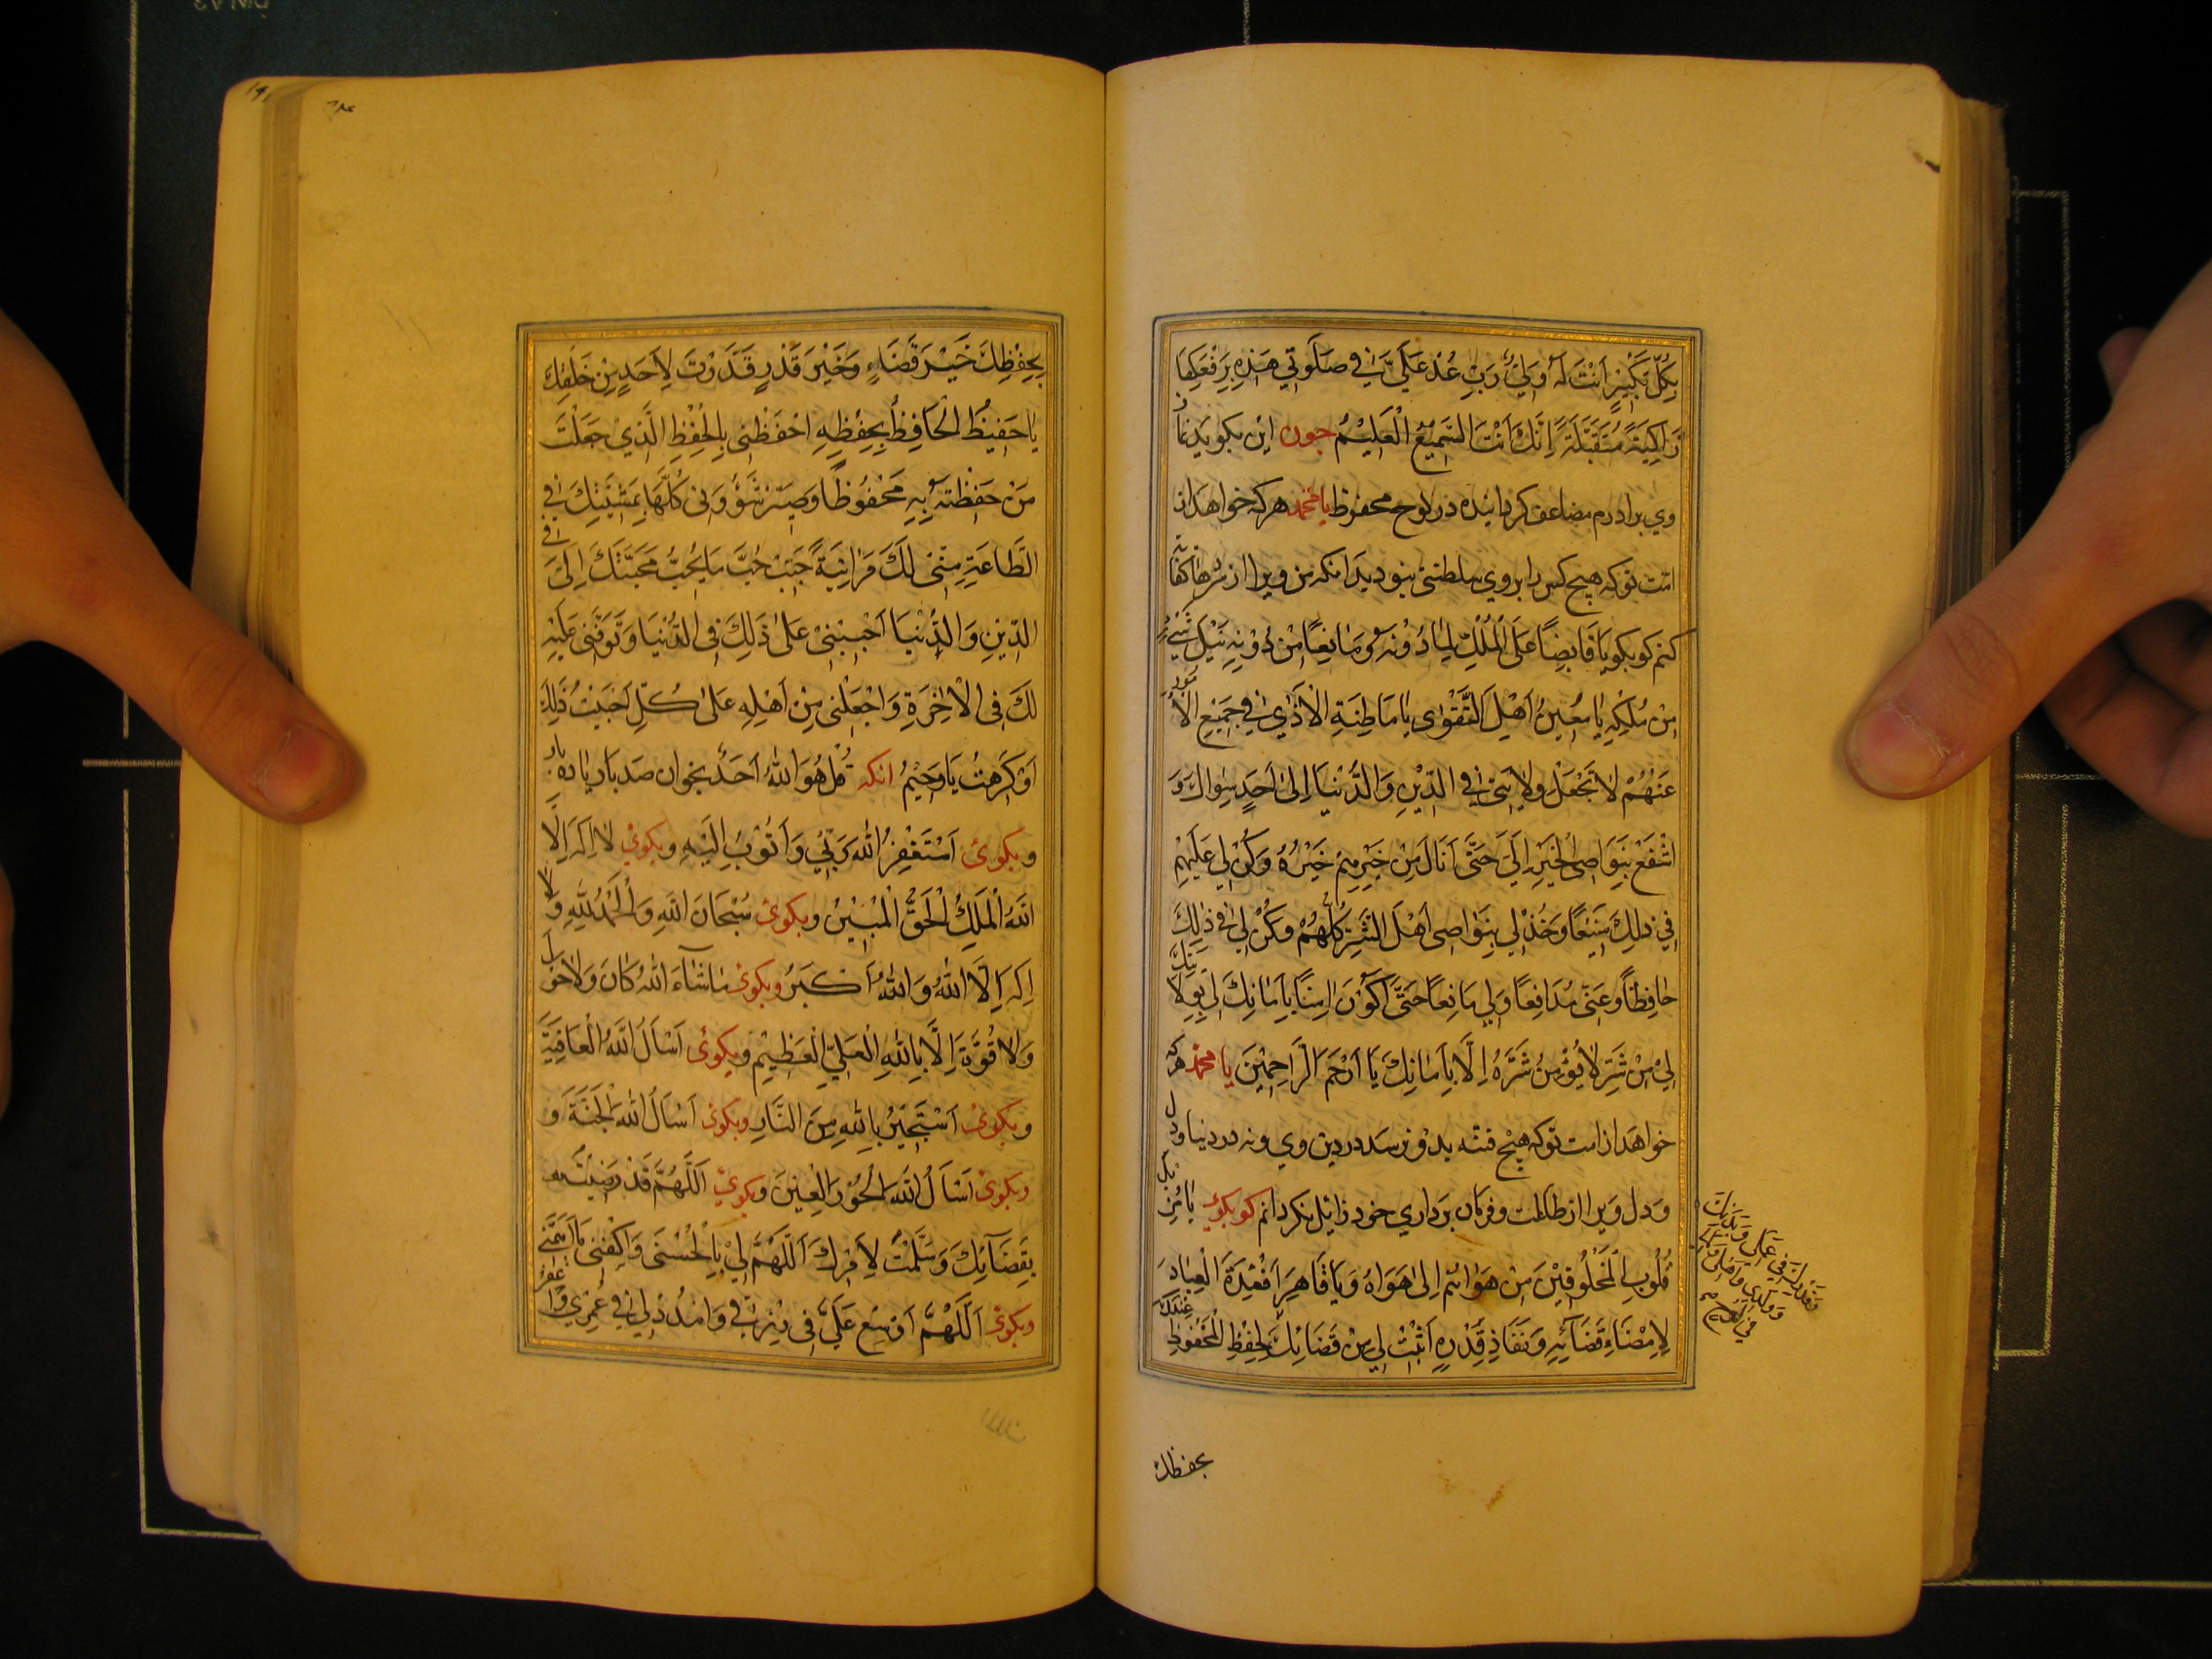 بِكُلِّ تَكْبِيرٍ اَنْتَ لَهُ وَلِيٌّ رَبِّ عُدْ عَلَيَّ فِي صَلَوتِي هَذِهِ بِرَفْعِكِهَا
زَاكِيَةً مُتَقَبَّلَةً اِنَّكَ اَنْتَ السَّمِيعُ الْعَلِيْمُ چون این بکوید نماز
وي برا درم مضاعف کردانیده در لوح محفوظ یا محمد هر که خواهد از
امت تو که هیچ کس را بر وي سلطنتی نبود بدانکه من ویرا از شرها کفایة
کنم کو بکو یَا قَابِضًا عَلَى الْمُلْكِ لِمَا دُوْنَهُ وَمَانِعًا مِنْ دُوْنِهِ نَيْلَ شَيْءٍ
مِنْ مُلْكِهِ يَا مُغْنِيَ اَهْلَ التَّقْوٰى بِاِمَاطَتِهِ الْاَذٰى فِي جَمِيعِ الْاُمُورِ
عَنْهُمْ لَا تَجْعَلْ وِلَايَتِي فِي الدِّيْنِ وَالدُّنْيَا اِلٰى اَحَدٍ سِوَاكَ وَ
اشْفَعْ بِنَوَاصِي الْخَيْرِ اِلَيَّ حَتّٰى اَنَالَ مِنْ خَيْرِهِمْ خَيْرَهُ وَكُنْ لِي عَلَيْهِمْ
فِي ذٰلِكَ مُعِينًا وَخُذْ لِي بِنَوَاصِي اَهْلَ الشَّرِّ كُلِّهُمْ وَكُنْ لِي فِي ذٰلِكَ
حَافِظًا وَعَنِّي مُدَافِعًا وَلِي مَانِعًا حَتّٰى اَكُوْنَ اٰمِنًا بِاَمَانِكَ لِي بِوِلَايَتِكَ
لِيْ مِنْ شَرِّ لَا يُؤْمَنُ شَرَّهُ اِلَّا بِاَمَانِكَ يَا اَرْحَمَ الرَّاحِمِيْنَ یا محمد هرکه
خواهد از امت تو که هیچ فتنه بدو نرسد در دین وي و نه در دنیا و دل
و دل ویرا از طاعت و فرمان برداري خود زائل نکردانم کو بکوی یَا مُزِيلَ
قُلُوبِ الْمَخْلُوقِيْنَ مِنْ هَوَاتِمْ اِلٰى هَوَاهُ وَيَا قَاهِرَ اَفْئِدَةَ الْعِبَادِ
لِاِمْضَاءِ قَضَائِهِ وَنَفَاذِ قَدْرِهِ اَثْبِتْ لِي مِنْ قَضَائِكَ بِحِفْظِ الْمَحْفُوظِ عِنْدَكَ
بحفظك
بِحِفْظِكَ خَيْرَ قَضَاءٍ وَخَيْرَ قَدْرٍ قَدَّرْتَ لِاَحَدٍ مِنْ خَلْقِكَ
يَا حَفِيظُ الْحَافِظُ بِحِفْظِهِ احْفَظْنِي بِالْحِفْظِ الَّذِي جَعَلْتَ
مَنْ حَفِظْتَهُ بِهِ مَحْفُوظًا وَصَيِّرْ شُؤُونِي كُلَّهَا بِمَشِيَّتِكَ فِي
الطَّاعَةِ مِنِّي لَكَ مَرَاتِبَةً حَبِّبْ حُبَّ مَا يُحِبُّ مَحَبَّتَكَ اِلَيَّ فِي
الدِّينِ وَالدُّنْيَا اَحْيِنِيْ عَلٰى ذَلِكَ فِي الدُّنْيَا وَتَوَفَّنِي عَلَيْهِ
لَكَ فِي الْاٰخِرَةِ وَاجْعَلْنِي مِنْ اَهْلِهِ عَلٰى كُلِّ اَحْبَبْتُ ذَلِكَ
اَوْ كَرِهْتُ يَا رَحِيْمُ انکه قُلْ هُوَ اللّٰهُ اَحَدٌ بخوان صد بار یا ده بار
و بکوی اَسْتَغْفِرُ اللّٰهَ رَبِّي وَاَتُوْبُ اِلَيْهِ و بکوی لَا اِلَهَ اِلَّا
اللّٰهُ الْمَلِكُ الْحَقُّ الْمُبِيْنُ و بکوی سُبْحَانَ اللّٰهِ وَالْحَمْدُ لِلّٰهِ وَ لَا
اِلَهَ اِلَّا اللّٰهُ وَاللّٰهُ اَكْبَرُ و بکوی مَا شَاءَ اللّٰهُ كَانَ وَلَا حَوْلَ
وَلَا قُوَّةَ اِلَّا بِاللّٰهِ الْعَلِيِّ الْعَظِيْمِ و بکوی اَسْاَلُ اللّٰهَ الْعَافِيَةَ
و بکوی اَسْتَجِيْرُ بِاللّٰهِ مِنَ النَّارِ و بکوی اَسْاَلُ اللّٰهَ الْجَنَّةَ و
و بکوی اَسْاَلُ اللّٰهَ الْحُوْرَ الْعِيْنَ و بکوی اَللّٰهُمَّ قَدْ رَضِيْتُ
بِقَضَائِكَ وَسَلَّمْتُ لِاَمْرِكَ اَللّٰهُمَّ لِيْ بِالْحُسْنٰى وَاكْفِنِي مَا اَهَمَّنِي
و بکوی اَللّٰهُمَّ اَوْسِعْ عَلَيَّ فِي رِزْقِي وَامْدُدْ لِي فِي عُمْرِي وَاغْفِرْ